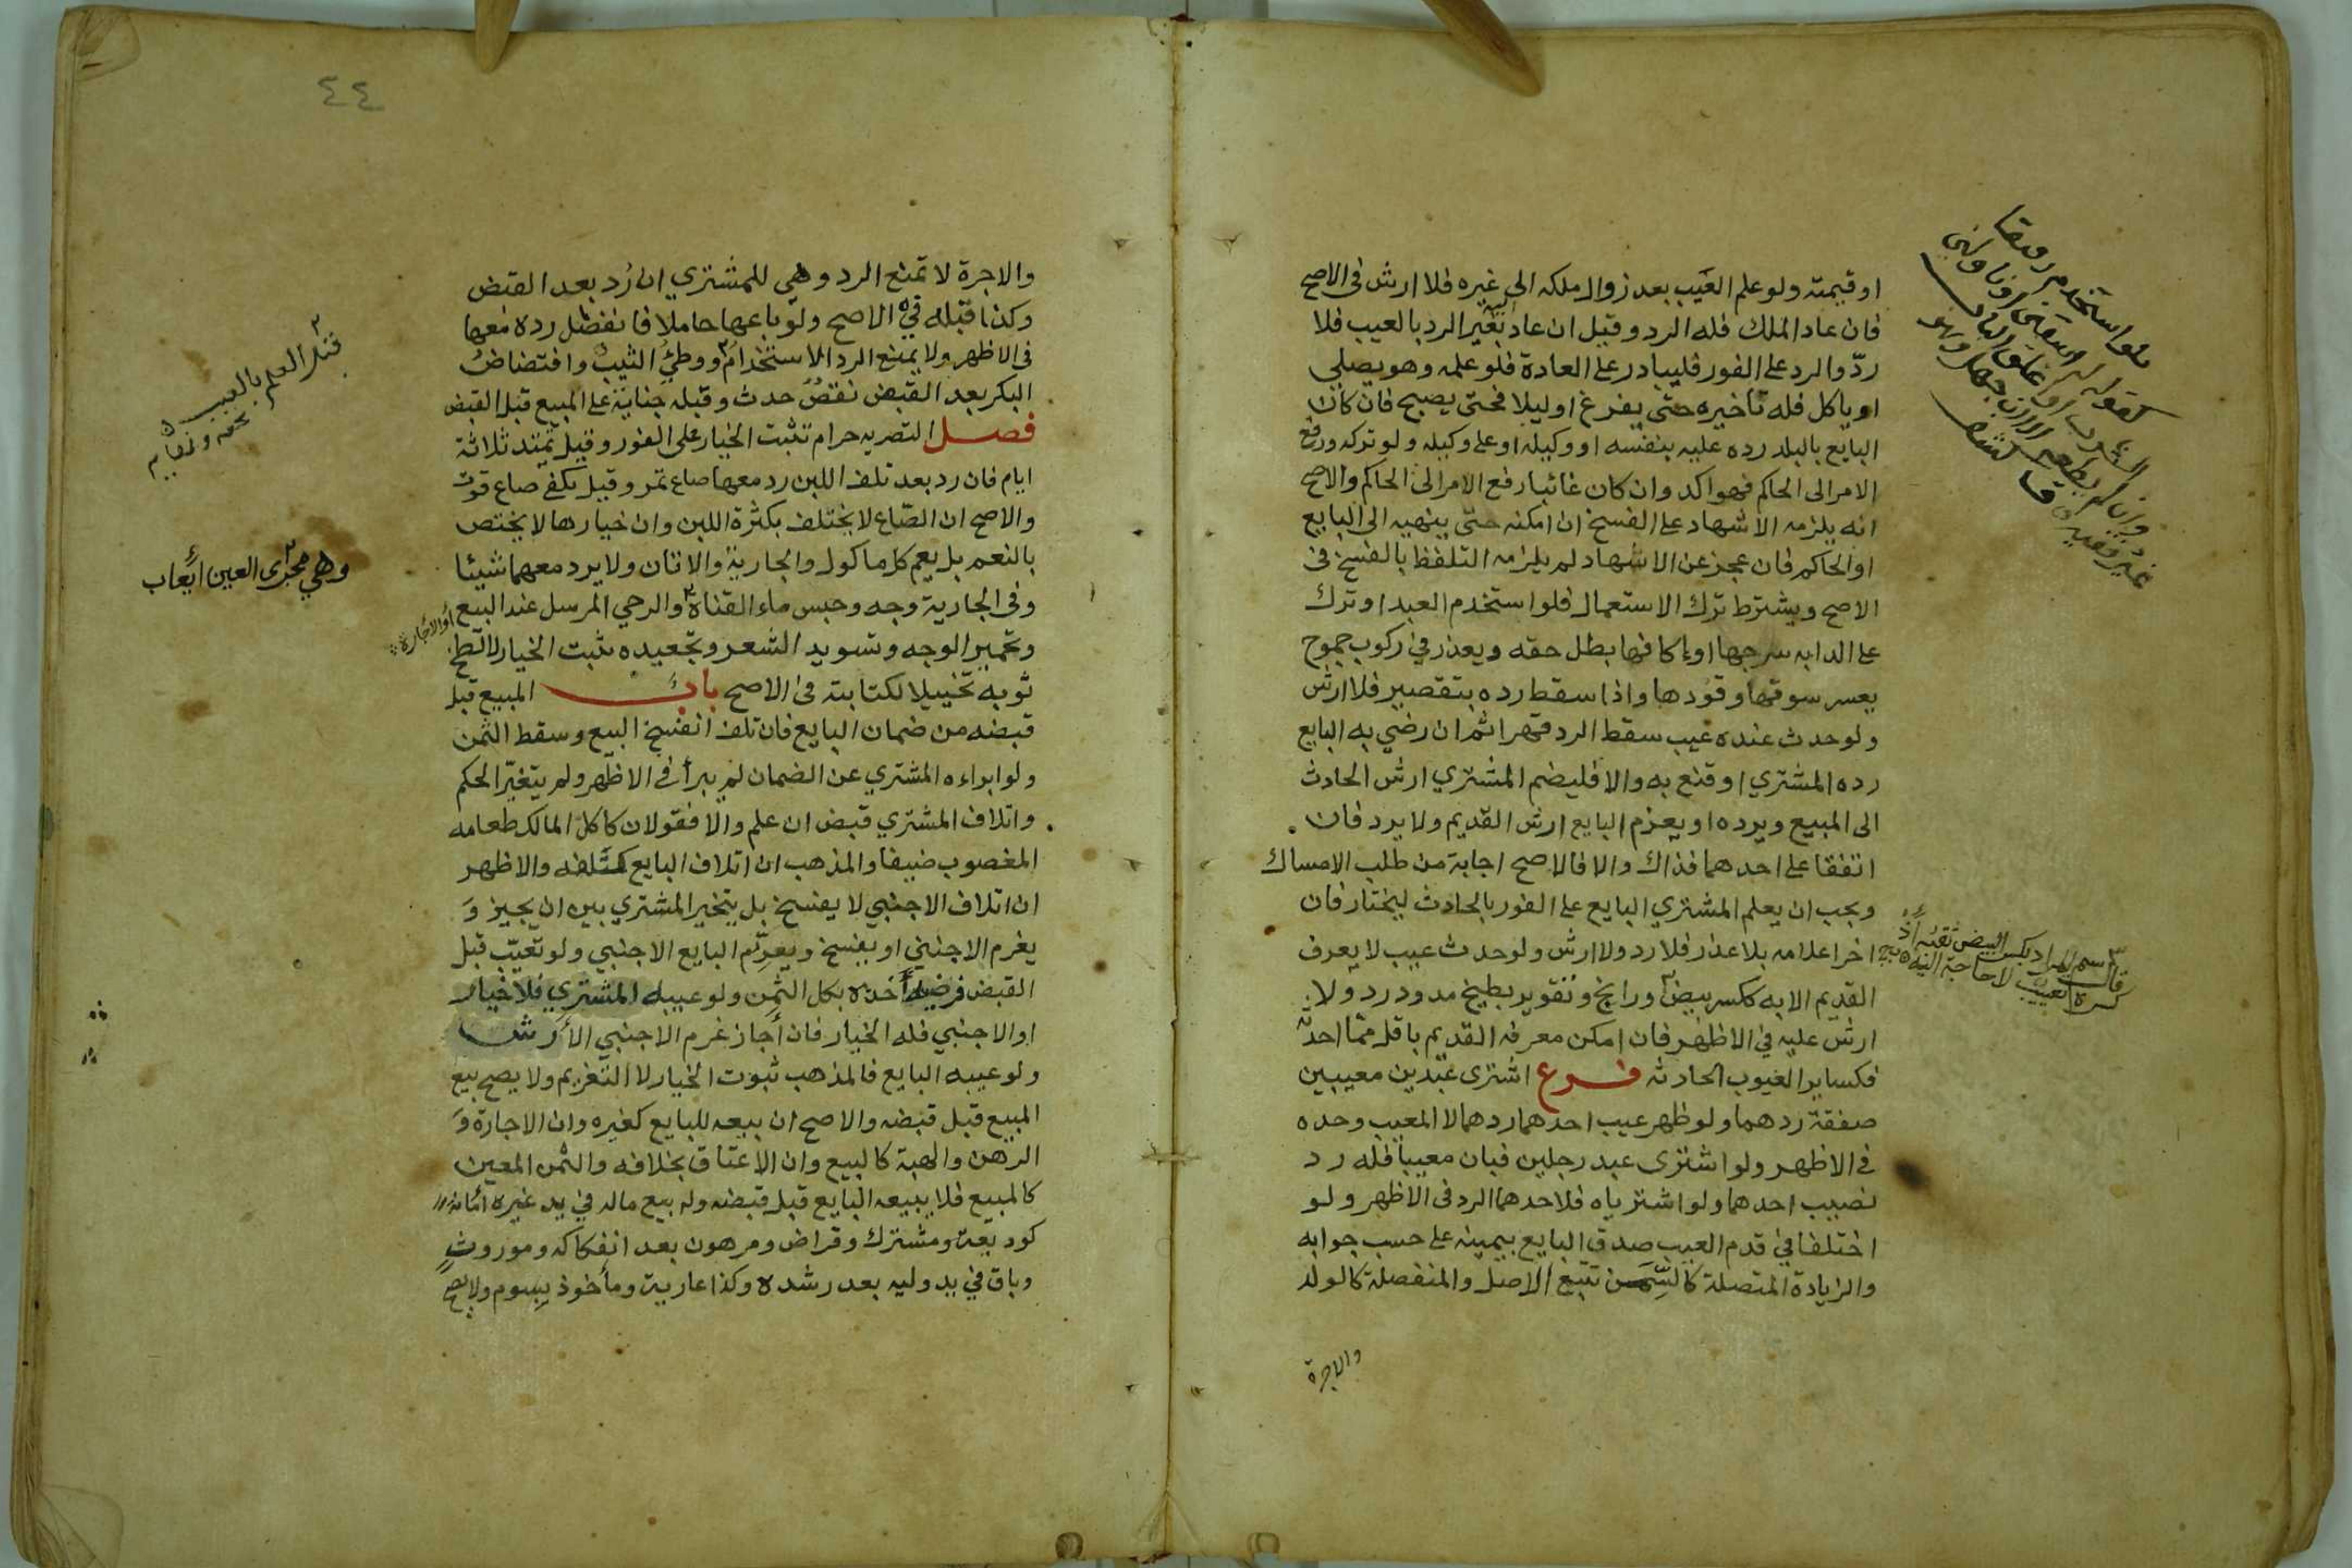 او قيمته ولو علم العَيب بعد زوال ملكه الى غيره فلا ارش فى الاصح
فان عاد الملك فله الرد وقيل ان عاد بغير الرد بالعيب فلا
ردّ والرد على الفور فليبادر على العادة فلو علمه وهو يصلي
او ياكل فله تأخيره حتى يفرغ او ليلا فحتى يصبح فان كان
البايع بالبلد رده عليه بنفسه او وكيله او على وكيله ولو تركه ورفع
الامر الى الحاكم فهو اكد وان كان غائبا رفع الامر الى الحاكم والاصح
انه يلزمه الاشهاد على الفسخ ان امكنه حتى ينهيه الى البايع
او الحاكم فان عجز عن الاشهاد لم يلزمه التلفظ بالفسخ فى
الاصح ويشترط ترك الاستعمال فلو استخدم العبد او ترك
على الدابه سرجها او إكافها بطل حقه ويعذر في ركوب جموح
يعسر سوقها وقودها واذا سقط رده بتقصير فلا ارش
ولو حدث عنده عيب سقط الرد قهرا ثم ان رضي به البايع
رده المشتري او قنع به والا فليضم المشتري ارش الحادث
الى المبيع ويرده او يغرم البايع ارش القديم ولا يرد فان
اتفقا على احدهما فذاك والا فالاصح اجابة من طلب الامساك
ويجب ان يعلم المشتري البايع على الفور بالحادث ليختار فان
اخر اعلامه بلا عذر فلا رد ولا ارش ولو حدث عيب لا يعرف
القديم الا به ككسر بيض ورانج وتقوير بطيخ مدود رد ولا
ارش عليه في الاظهر فان امكن معرفه القديم باقل مما احدثه
فكساير العيوب الحادثه فرع اشترى عبدين معيبين
صفقة ردهما ولو ظهر عيب احدهما ردهما لا المعيب وحده
في الاظهر ولو اشترى عبد رجلين فبان معيبا فله رد
نصيب احدهما ولو اشترياه فلاحدهما الرد فى الاظهر ولو
اختلفا في قدم العيب صدق البايع بيمينه على حسب جوابه
والزيادة المتصلة كالسِّمَن تتبع الاصل والمنفصلة كالولد
والاجرة
فلو استخدم رقيقا
كقوله اسقني او ناولني
الثوب او اغلق الباب
قال
لا حاجة اليه
٤٤
والاجرة لا تمنع الرد وهي للمشتري ان رُد بعد القبض
وكذا قبله في الاصح ولو باعها حاملا فانفصل رده معها
في الاظهر ولا يمنع الرد الاستخدامُ ووطئُ الثيب وافتضاضُ
البكر بعد القبض نقصٌ حدث وقبله جناية على المبيع قبل القبض
فصل التصريه حرام تثبت الخيار على الفور وقيل تمتد ثلاثة
ايام فان رد بعد تلف اللبن رد معها صاع تمر وقيل يكفي صاع قوت
والاصح ان الصّاع لا يختلف بكثرة اللبن وان خيارها لا يختص
بالنعم بل يعم كل ماكول والجارية والاتان ولا يرد معهما شيئا
وفى الجارية وجه وحبس ماء القناة والرحي المرسل عند البيع
أو الاجارة
وتحمير الوجه وتسويد الشعر وتجعيده يثبت الخيار لا لطخ
ثوبه تخييلا لكتابته في الاصح باب المبيع قبل
قبضه من ضمان البايع فان تلف انفسخ البيع وسقط الثمن
ولو ابراءه المشتري عن الضمان لم يبرأ في الاظهر ولم يتغيّر الحكم
واتلاف المشتري قبض ان علم والا فقولان كاكل المالك طعامه
المغصوب ضيفا والمذهب ان اتلاف البايع كتلفه والاظهر
ان اتلاف الاجنبي لا يفسخ بل يتخير المشتري بين ان يجيز وَ
يغرم الاجنبي او يفسخ ويغرّم البايع الاجنبي ولو تعيّب قبل
القبض فرضيه أخذه بكل الثمن ولو عيبه المشتري فلا خيار
او الاجنبي فله الخيار فان أجاز غرم الاجنبي الأرش
ولو عيبه البايع فالمذهب ثبوت الخيار لا التغريم ولا يصح بيع
المبيع قبل قبضه والاصح ان بيعه للبايع كغيره وان الاجارة وَ
الرهن والهبة كالبيع وان الاعتاق بخلافه والثمن المعين
كالمبيع فلا يبيعه البايع قبل قبضه وله بيع ماله في يد غيره امانة
كوديعة ومشترك وقراض ومرهون بعد انفكاكه وموروث
وباق في يد وليه بعد رشده وكذا عارية ومأخوذ بسوم ولا يصح
قبل العلم بالعيب
وهي مجرى العين ايعاب